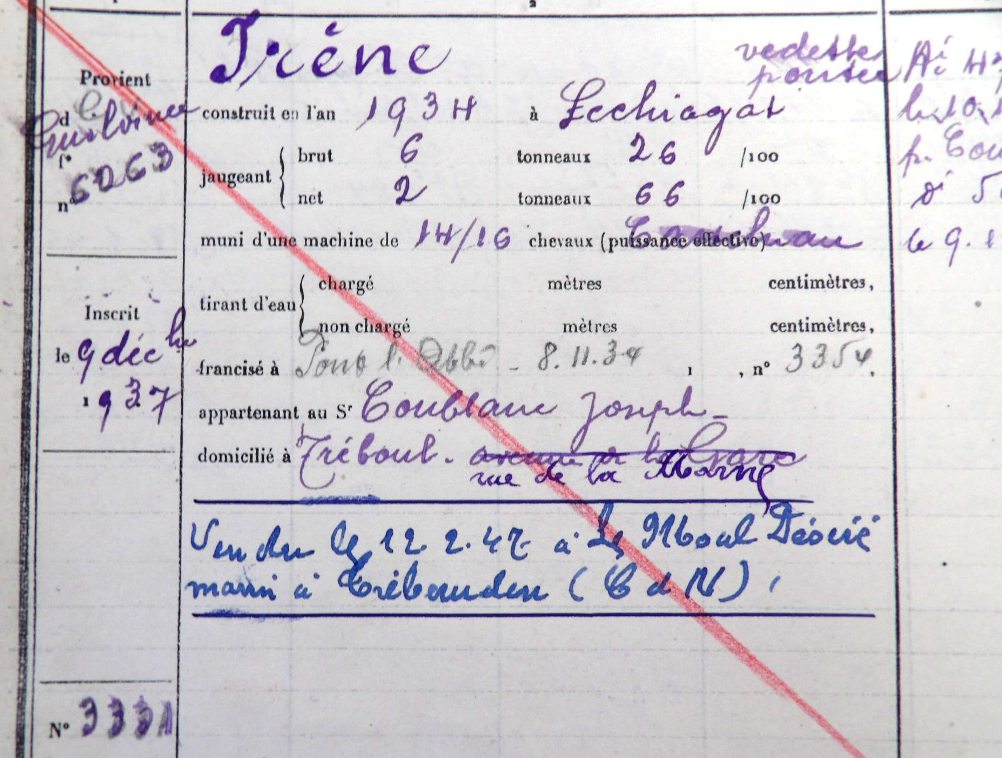 Irène
vedette
pontée
Provient
d Guilvinec
f°
n° 6263
construit en l'an 1934 à Lechiagat
jaugeant { brut 6 tonneaux 26 /100
net 2 tonneaux 66 /100
muni d'une machine de 14/16 chevaux (puissance effective)
tirant d'eau { chargé mètres centimètres,
non chargé mètres centimètres,
francisé à Pont l'Abbé - 8.11.34 , n° 3354.
appartenant au Sr Coublanc Joseph -
domicilié à Tréboul. avenue de la Gare
rue de la Marne
Inscrit
le 9 décbre
1937
Vendu le 12.2.47 à Le Moal Désiré
marin à Trébeurden (C d N)
N° 3331